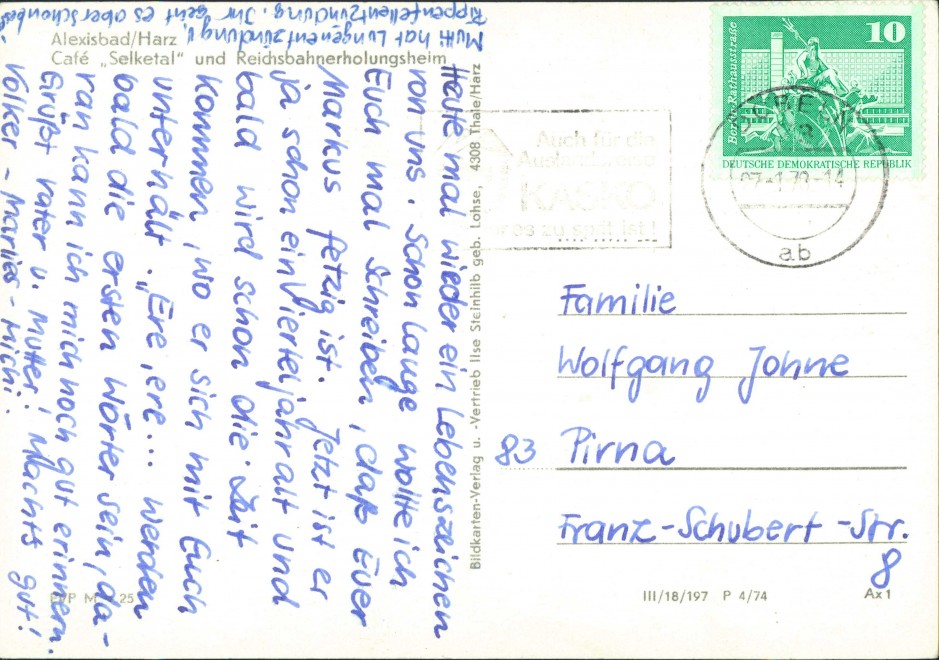 Mutti hat Lungenentzündung u.
Rippenfellentzündung. Ihr geht es aber schon besser
Alexisbad/Harz
Café „Selketal" und Reichsbahnerholungsheim
Heute mal wieder ein Lebenszeichen
von uns. Schon lange wollte ich
Euch mal schreiben, daß Euer
Markus fetzig ist. Jetzt ist er
ja schon ein Vierteljahr alt und
bald wird schon die Zeit
kommen, wo er sich mit Euch
unterhält. „Ere, ere... werden
bald die ersten Wörter sein, da-
ran kann ich mich noch gut erinnern.
Grüßt Vater u. Mutter! Machts gut!
Volker - Marlies - Mich.
Bildkarten-Verlag u. -Vertrieb Ilse Steinhilb geb. Lohse, 4308 Thale/Harz
Auch für die
KASKO
es zu spät ist!
10
Berlin, Rathausstraße
DEUTSCHE DEMOKRATISCHE REPUBLIK
-1.79-14
ab
Familie
Wolfgang Johne
83 Pirna
Franz-Schubert-Str.
8
25
III/18/197 P 4/74
Ax 1